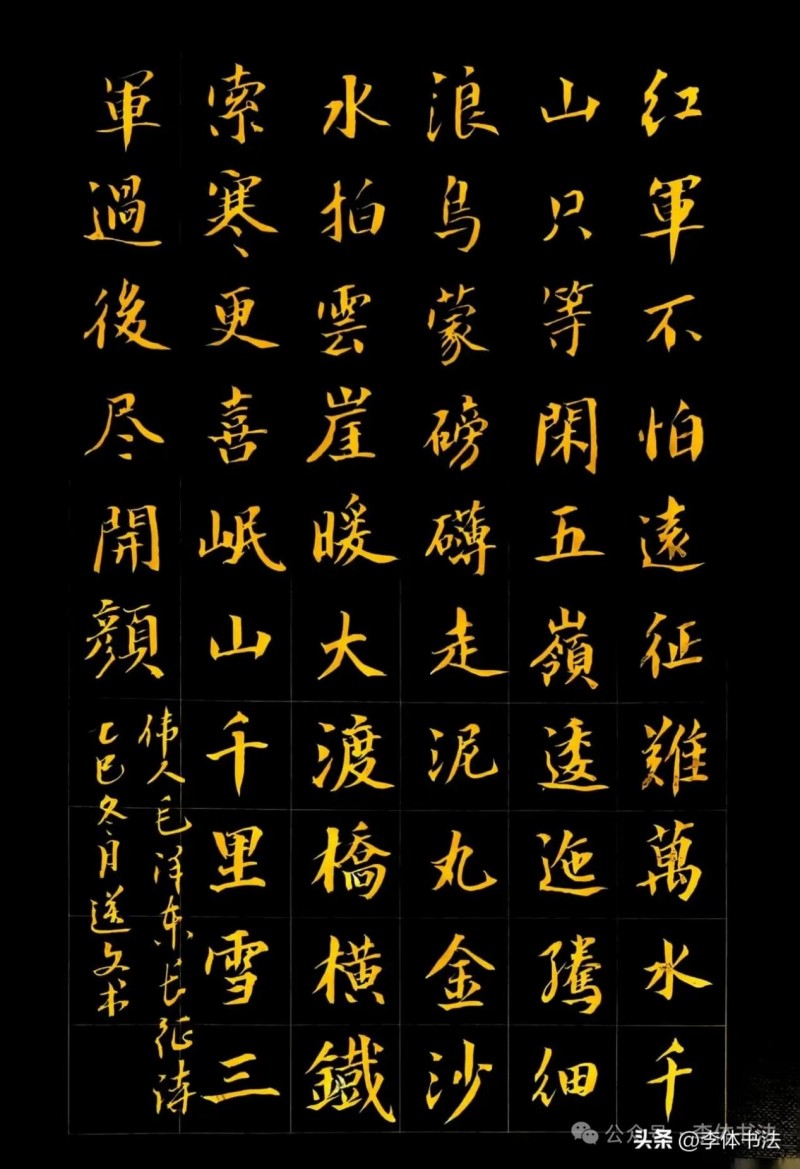 紅軍不怕遠征難萬水千
山只等閑五嶺逶迤騰細
浪烏蒙磅礴走泥丸金沙
水拍雲崖暖大渡橋橫鐵
索寒更喜岷山千里雪三
軍過後尽開顔
伟人毛泽东长征诗
乙巳冬月送文术
公众号 · 李体书法
头条 @李体书法